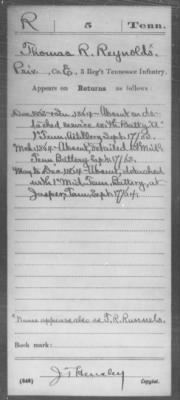 R 5 Tenn.
Thomas R. Reynolds.
Priv., Co. E, 5 Reg't Tennessee Infantry.
Appears on
Returns as follows:
Dec. 1863 & Jan. 1864 - Absent on de-
tached service with Batty. "A"
1st Tenn. Artillery, Sept. 17/63.
Mch. 1864 - Absent, detailed in
Tenn. Battery Sept. 17/63.
to Dec. 1864 - Absent, detached
with 1st Mid. Tenn. Battery, at
Jasper, Tenn. Sept. 17/64.
Name appears also as T. R.
Book mark:
J T Hensley
(546) Copyist.